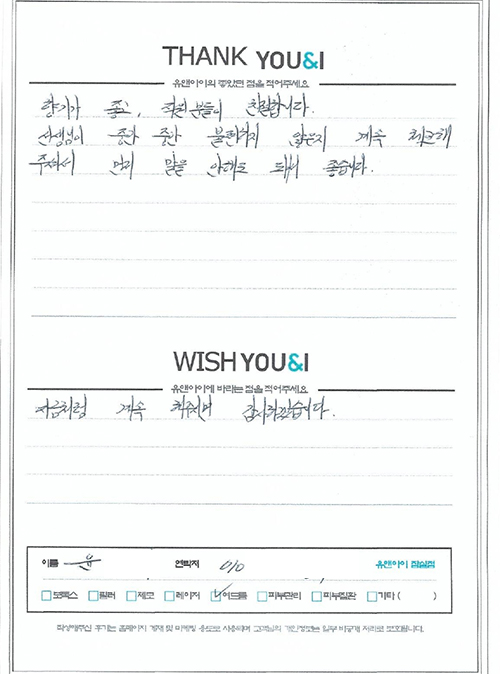 THANK YOU&I
유앤아이의 좋았던 점을 적어주세요
향기가 좋고, 직원분들이 친절합니다.
선생님이 중간 중간 불편하지 않은지 계속 체크해
주셔서 먼저 말을 안해도 되서 좋습니다.
WISH YOU&I
유앤아이에 바라는 점을 적어주세요
지금처럼 계속 해주시면 감사하겠습니다.
이름 윤 연락처 010 유앤아이 잠실점
보톡스 필러 제모 레이저 여드름 피부관리 피부질환 기타 ( )
작성해주신 후기는 홈페이지 게재 및 마케팅 용도로 사용되며 고객님의 개인정보는 일부 비공개 처리로 보호됩니다.